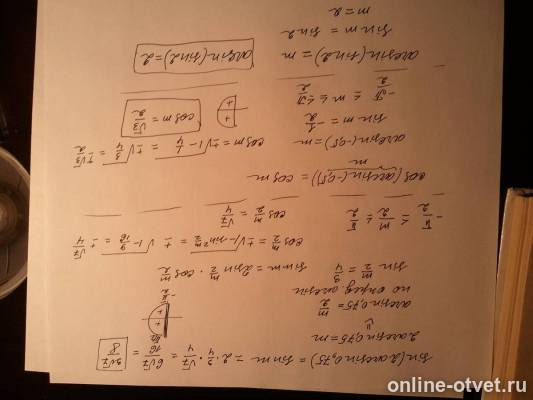 sin(2arcsin0,75) = sin m = 2·3/4·√7/4 = 6√7/16 = 3√7/8
2arcsin0,75 = m
arcsin0,75 = m/2
по опред. arcsin
sin m/2 = 3/4
sin m = 2sin m/2 · cos m/2
cos m/2 = ±√1-sin² m/2 = ±√1-9/16 = ±√7/4
-π/2 ≤ m/2 ≤ π/2
cos m/2 = √7/4
cos(arcsin(-0,5)) = cos m
m
arcsin(-0,5) = m
sin m = -1/2
-π/2 ≤ m ≤ π/2
cos m = ±√1-1/4 = ±√3/4 = ±√3/2
cos m = √3/2
arcsin(sin2) = m
arcsin(sin2) = 2
sin m = sin2
m = 2
online-otvet.ru